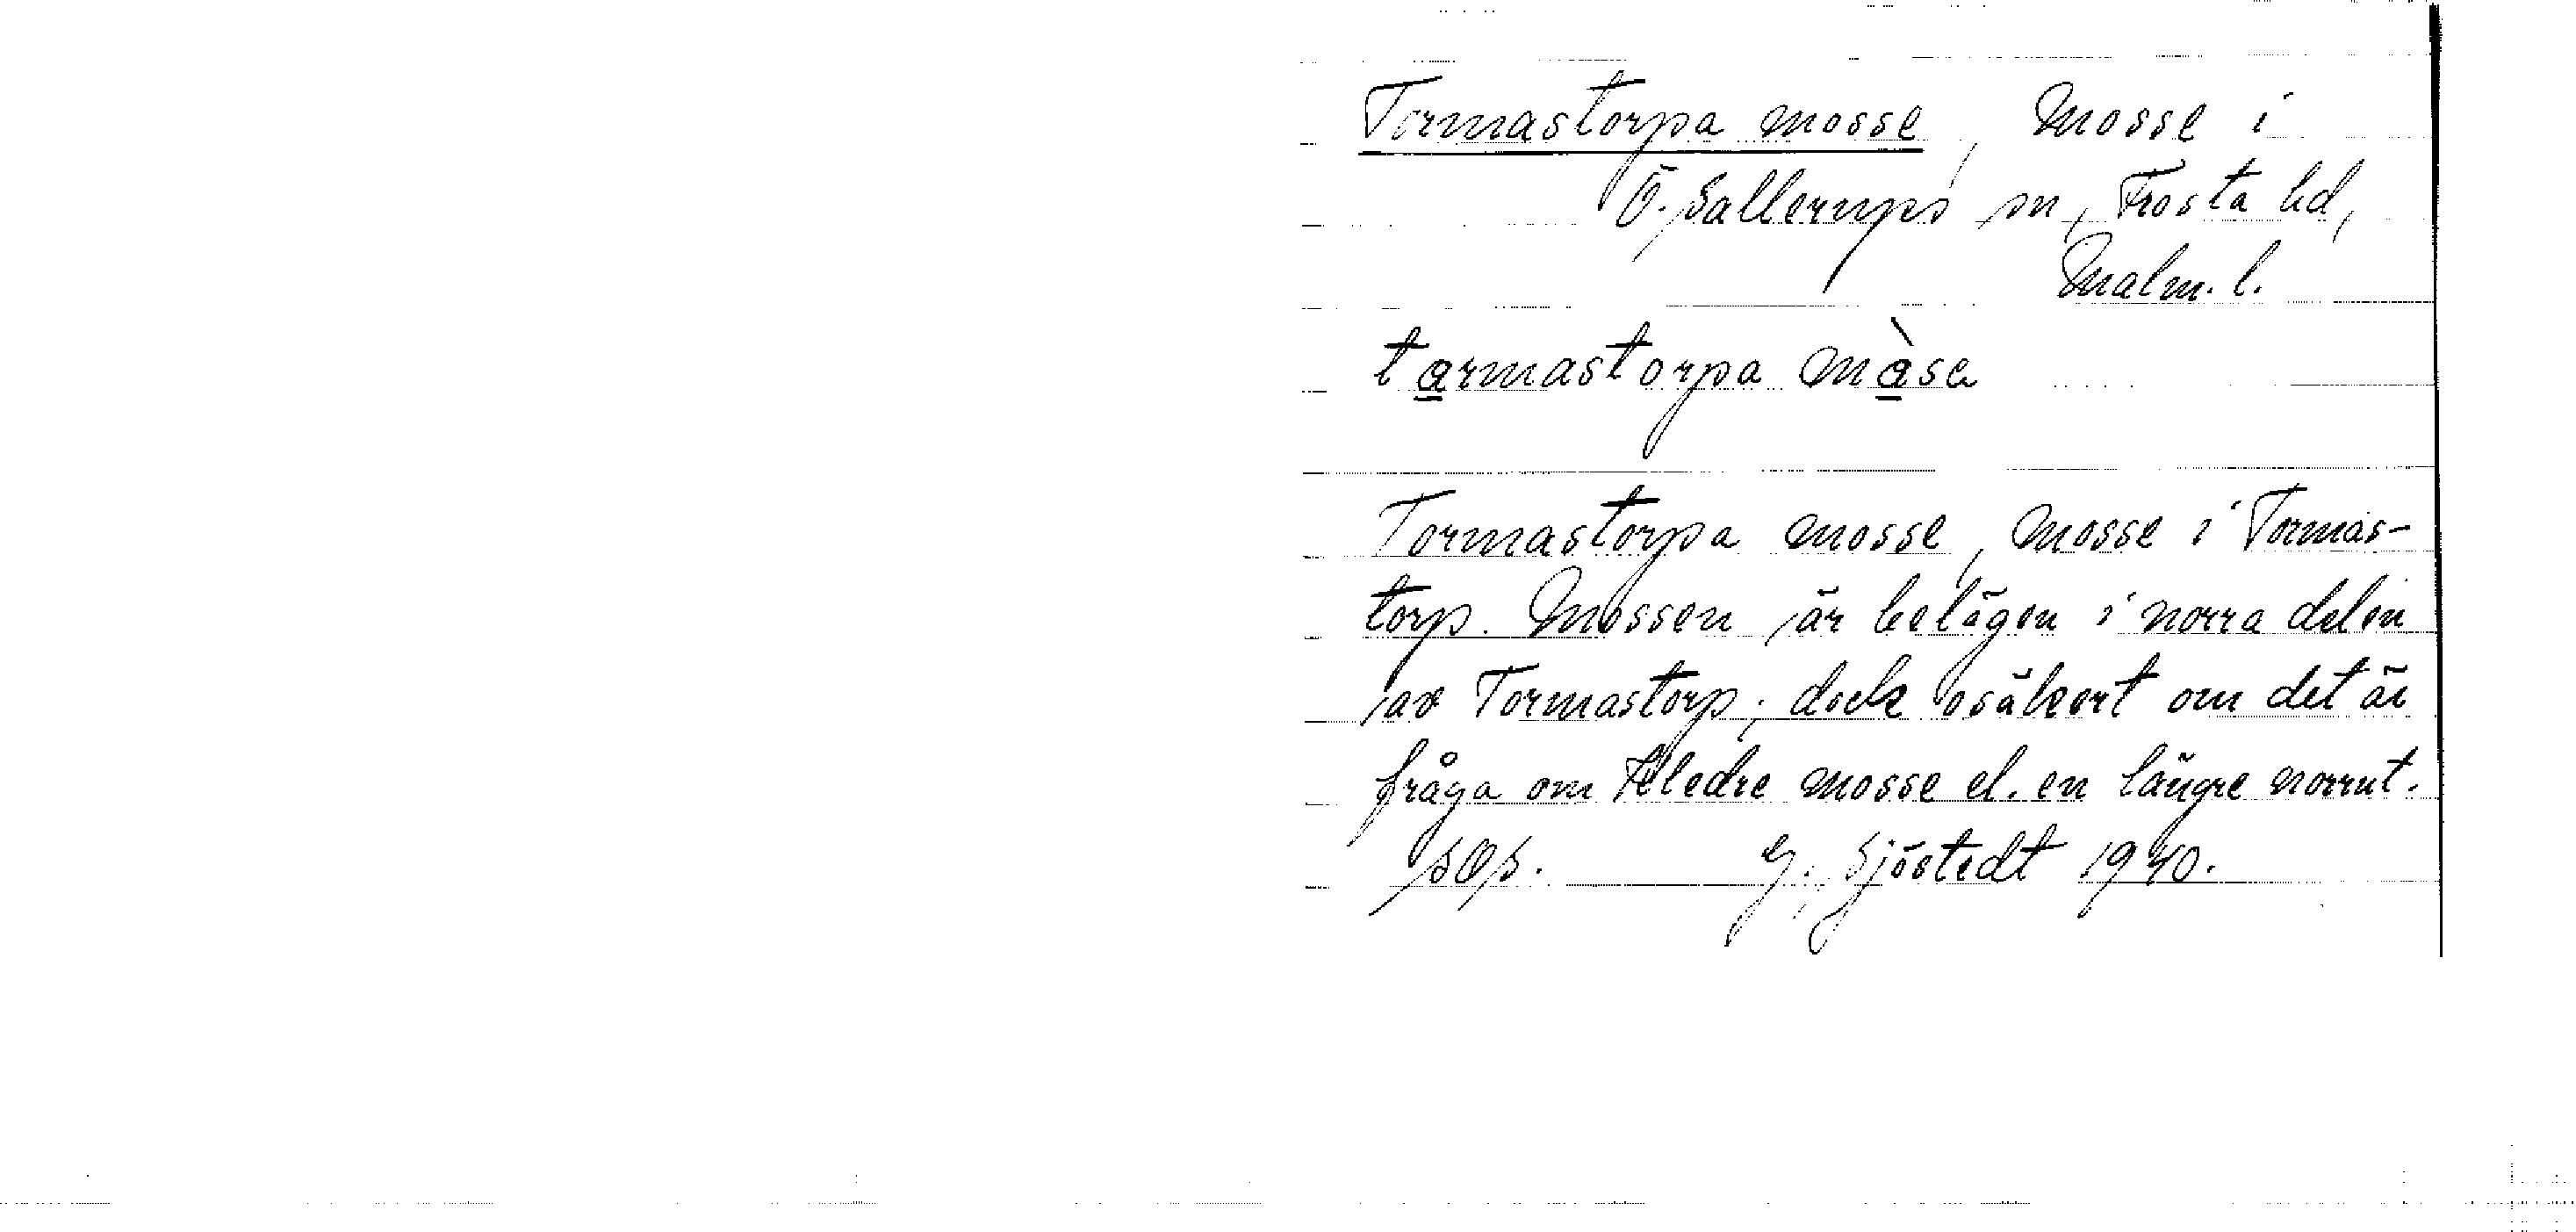 Tormastorpa mosse, mosse i
Ö. Sallerups sn, Frosta hd,
Malm. l.
tarmastorpa màsa
Tormastorpa mosse, mosse i Tormas-
torp. Mossen är belägen i norra delen
av Tormastorp; dock osäkert om det är
fråga om mosse el. en längre norrut.
G. Sjöstedt 1940.